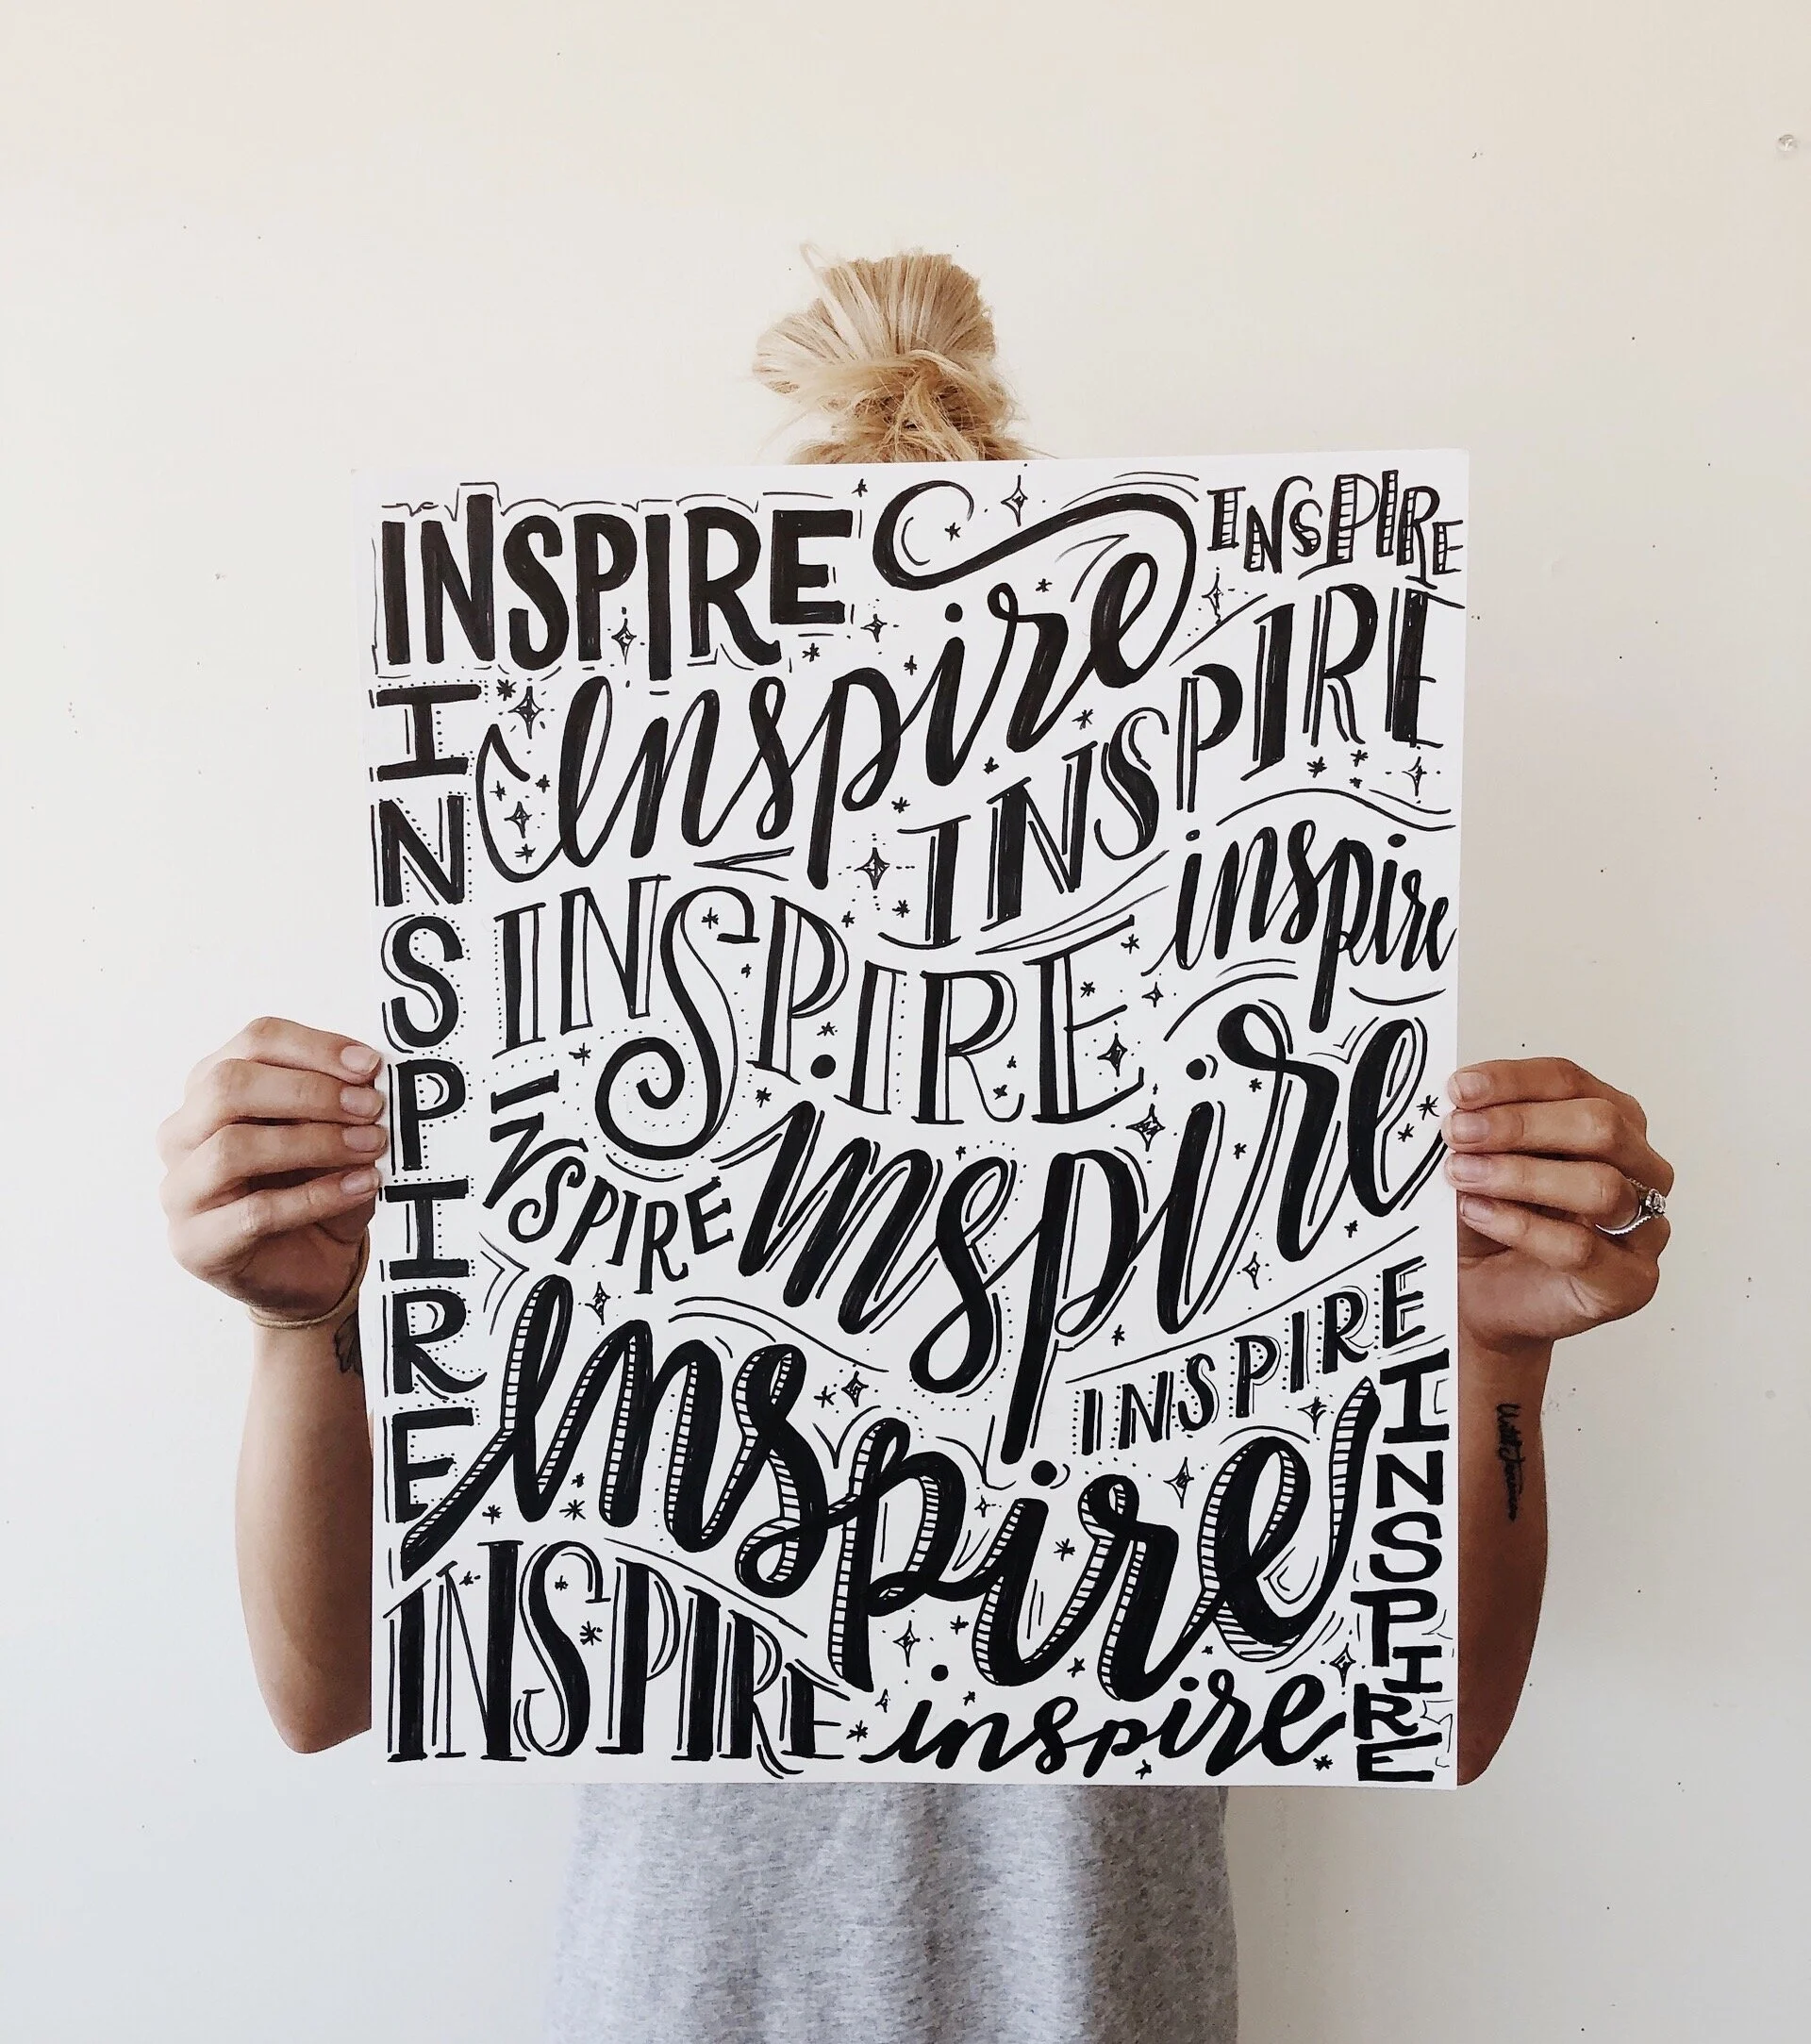 INSPIRE
inspire
INSPIRE
INSPIRE
INSPIRE
INSPIRE
inspire
INSPIRE
inspire
INSPIRE
INSPIRE
inspire
INSPIRE
INSPIRE
inspire